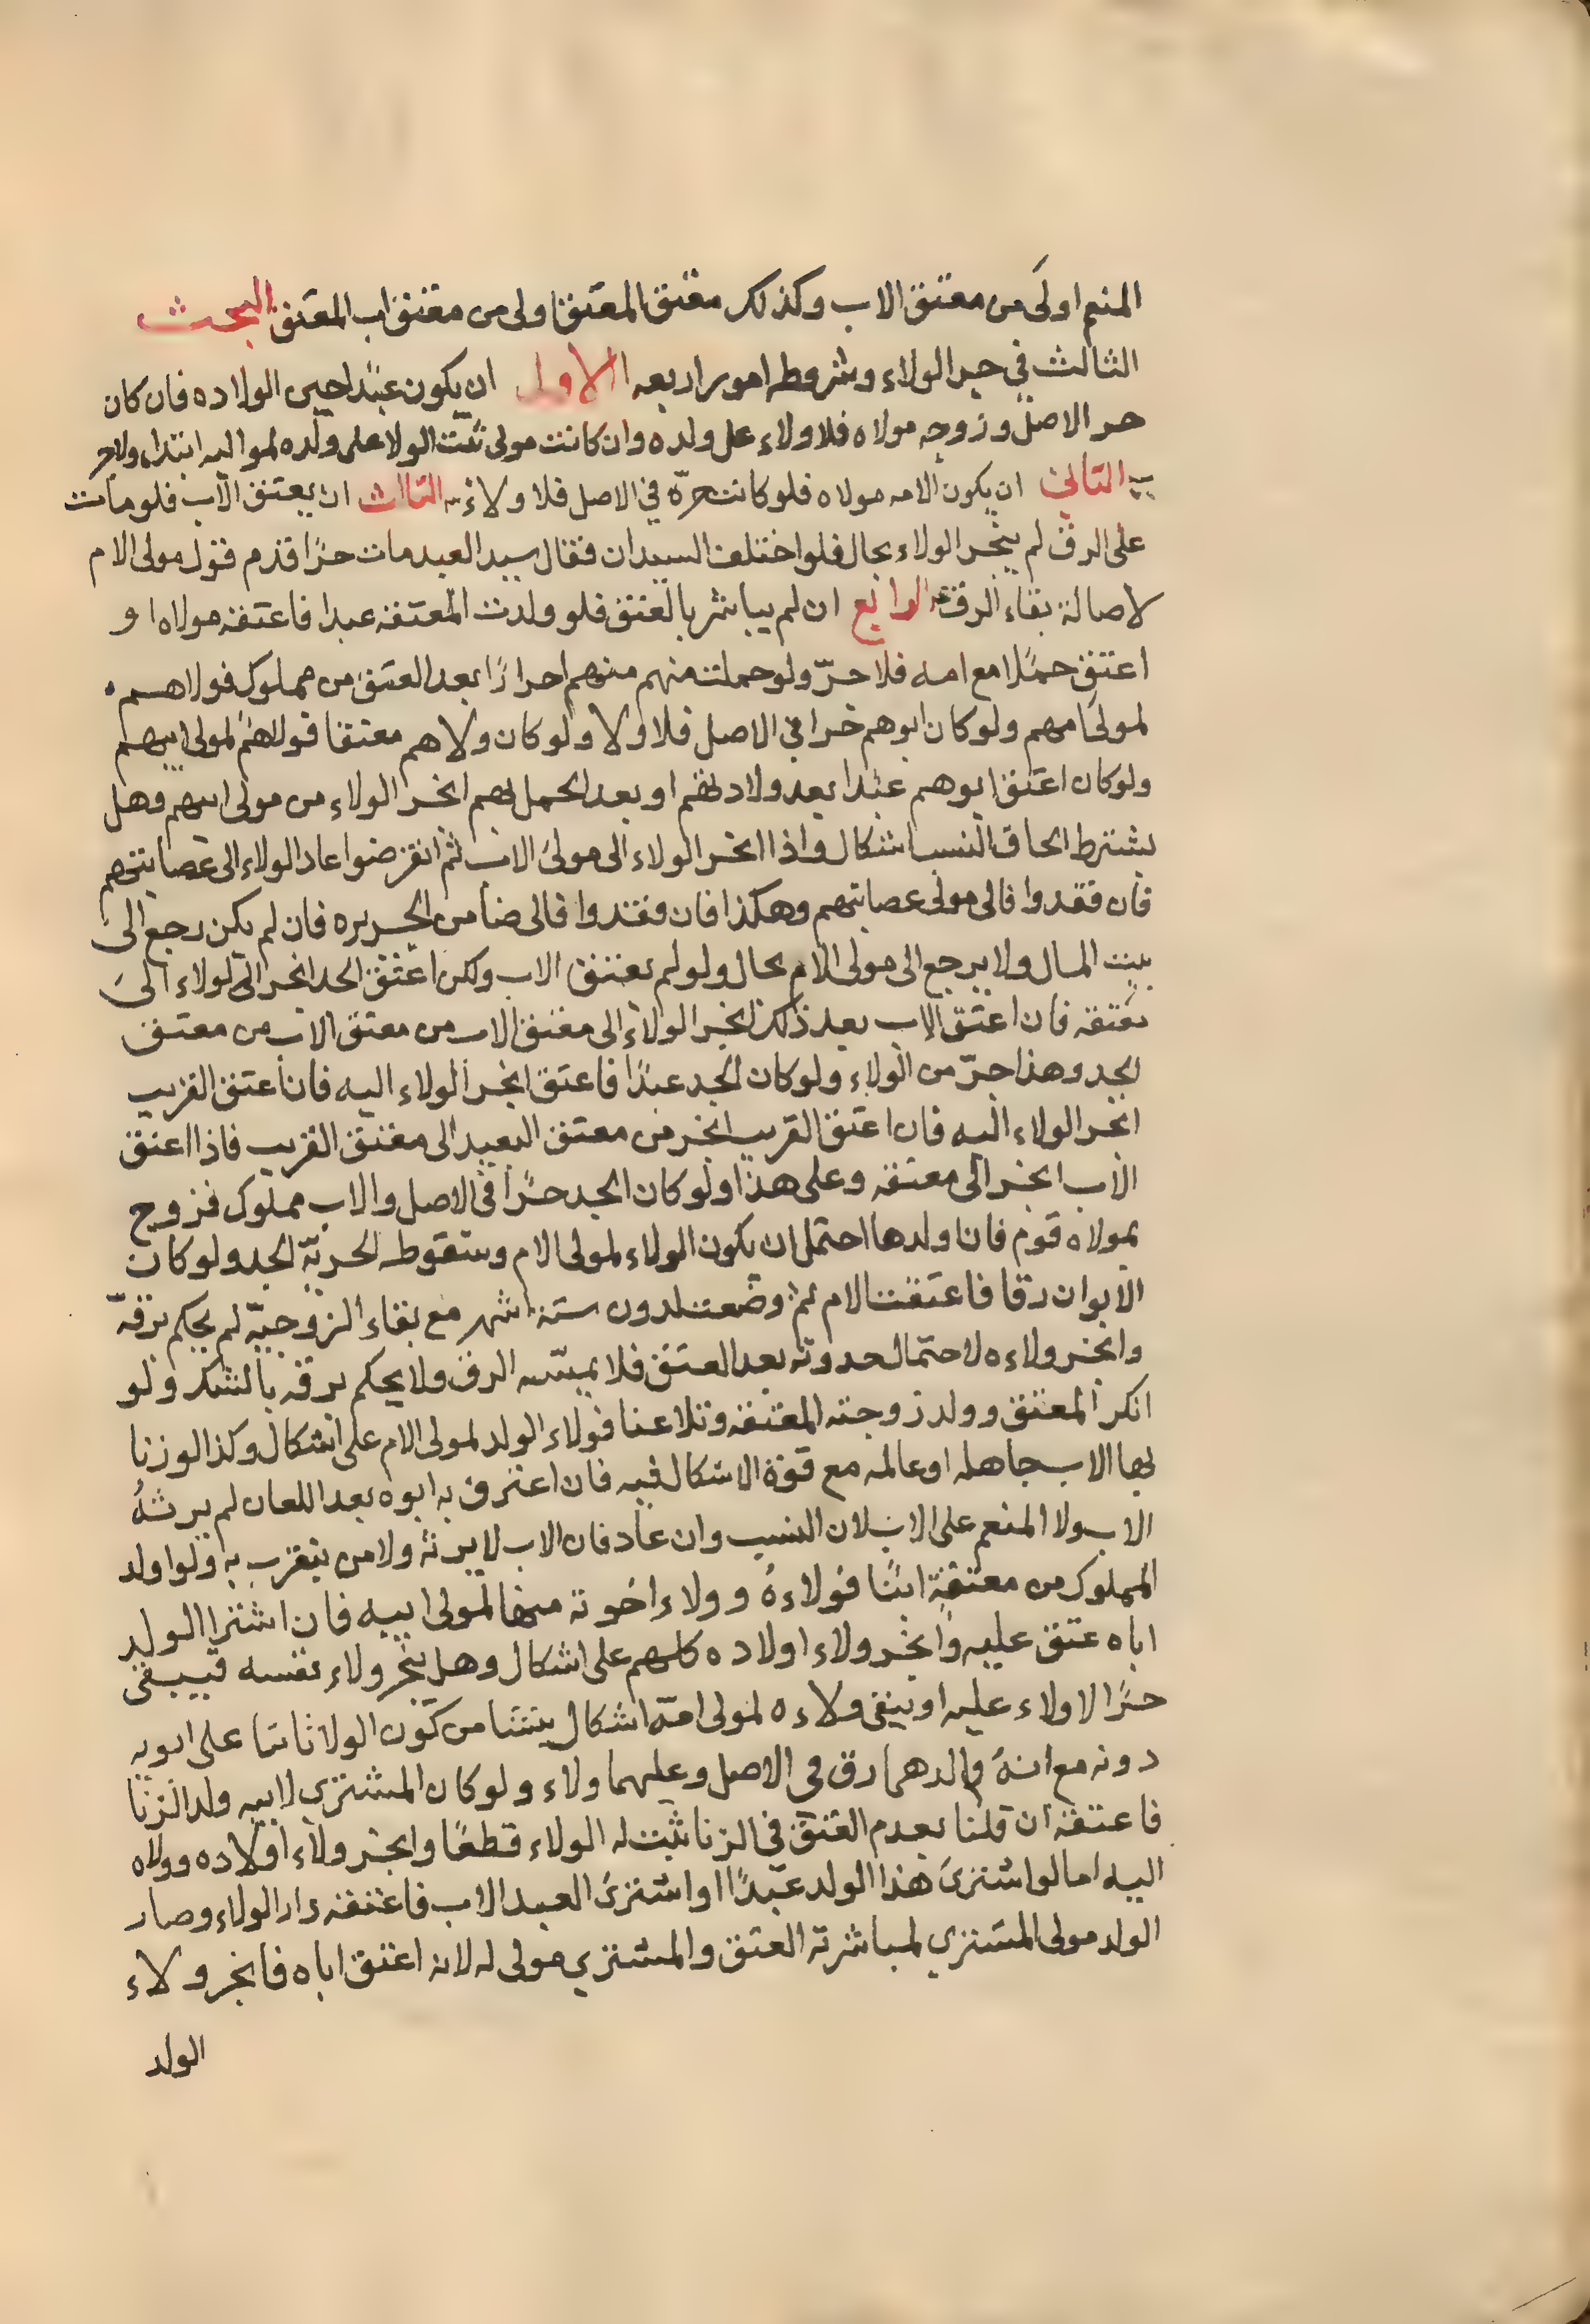 المنعم اولى من معتق الاب وكذلك معتق المعتق اولى من معتق اب المعتق البحث
الثالث في جر الولاء وشروطه امور اربعه الاول ان يكون عبدا حين الولاده فان كان
حر الاصل وزوجه مولاه فلا ولاء على ولده وان كانت مولى ثبت الولا على ولده لمواليه ابتداء ولا جر
الثاني ان يكون الامه مولاه فلو كانت حرّه في الاصل فلا ولاء الثالث ان يعتق الاب فلو مات
على الرق لم ينجر الولاء بحال فلو اختلف السيدان فقال سيد العبد مات حرًا قدم قول مولى الام
لاصالة بقاء الرق الرابع ان لم يباشر بالعتق فلو ولدت المعتقه عبدا فاعتقه مولاه او
اعتق حملًا مع امه فلا جرّ ولو حملت منهم احرارًا بعد العتق من مملوك فولاهم
لمولى امهم ولو كان ابوهم حرا في الاصل فلا ولا ولو كان ولاهم معتقا فولاهم لمولى ابيهم
ولو كان اعتق ابوهم عبدا بعد ولادتهم او بعد الحمل بهم انجر الولاء من مولى امهم وهل
يشترط الحاق النسب اشكال واذا انجر الولاء الى مولى الاب ثم انقرضوا عاد الولاء الى عصابتهم
فان فقدوا فالى مولى عصابتهم وهكذا فان فقدوا فالى ضامن الجريره فان لم يكن رجع الى
بيت المال ولا يرجع الى مولى الام بحال ولو لم يعتق الاب ولكن اعتق الجد انجر الولاء الى
معتقه فان اعتق الاب بعد ذلك انجر الولاء الى معتق الاب من معتق الاب من معتق
الجد وهذا جرّ من الولاء ولو كان الجد عبدًا فاعتق انجر الولاء اليه فان اعتق القريب
انجر الولاء اليه فان اعتق القريب انجر من معتق البعيد الى معتق القريب فاذا اعتق
الاب انجر الى معتقه وعلى هذا ولو كان الجد حرًا في الاصل والاب مملوك فزوج
بمولاه قوم فان اولدها احتمل ان يكون الولاء لمولى الام وسقوطه لحريّة الجد ولو كان
الابوان رقا فاعتقت الام ثم وضعت لدون ستة اشهر مع بقاء الزوجيّة لم يحكم برقّه
وانجر ولاءه لاحتمال حدوثه بعد العتق فلا يمسّه الرق ولا يحكم برقه بالشك ولو
انكر المعتق وولد زوجته المعتقه وتلاعنا فولاء الولد لمولى الام على اشكال وكذا لو زنا
بها الاب جاهله او عالمه مع قوّة الاشكال فيه فان اعترف به ابوه بعد اللعان لم يرثهُ
الاب ولا المنعم على الاب لان النسب وان عاد فان الاب لا يرثه ولا من يتقرب به ولو اولد
المملوك من معتقةٍ ابنًا فولاءهُ وولاء اخوته منها لمولى ابيه فان اشترا الولد
اباه عتق عليه وانجر ولاء اولاده كلهم على اشكال وهل ينجر ولاء نفسه فيبقى
حرًا لا ولاء عليه او يبقى ولاءه لمولى امّه اشكال ينشا من كون الولا ثابتا على ابويه
دونه مع انهُ والدهما رق في الاصل وعليهما ولاء ولو كان المشتري لابيه ولد الزنا
فاعتقه ان قلنا بعدم العتق في الزنا ثبت له الولاء قطعًا وانجر ولاء اولاده وولاه
اليه اما لو اشترى هذا الولد عبدًا او اشترى العبد الاب فاعتقه دار الولاء وصار
الولد مولى المشتري لمباشرته العتق والمشتري مولى له لانه اعتق اباه فانجر ولاء
الولد